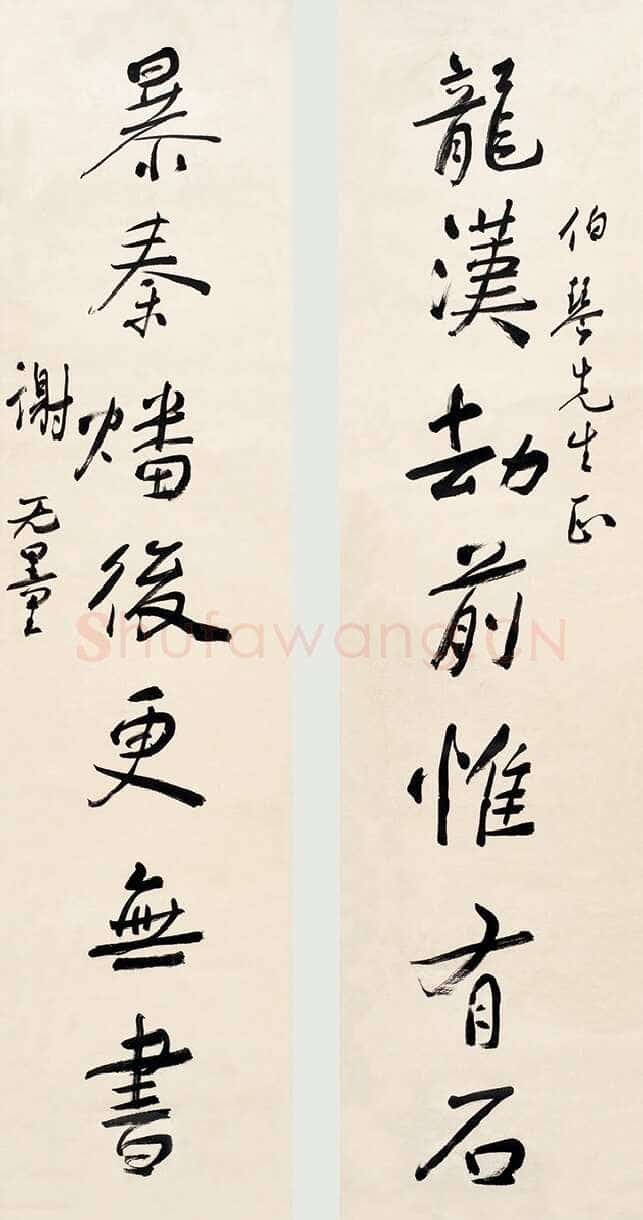 伯琴先生正
龍漢劫前惟有石
暴秦燔後更無書
謝无量
Shufawang.CN